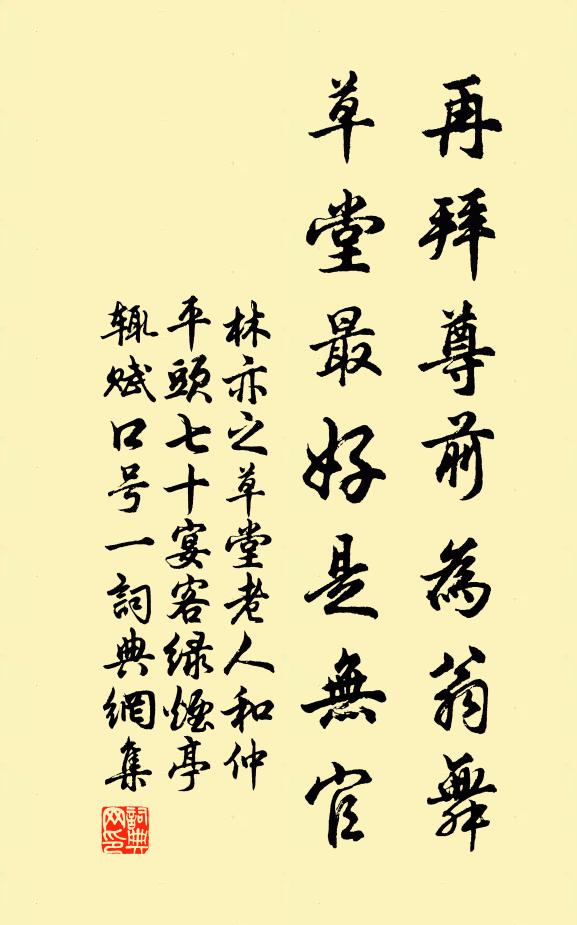 再拜尊前為翁舞
草堂最好是無官
林亦之草堂老人和仲
平頭七十宴客綠煙亭
輒賦口号一詞典網集
詞典网印